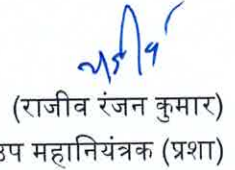 (राजीव रंजन कुमार)
उप महानियंत्रक (प्रशा)